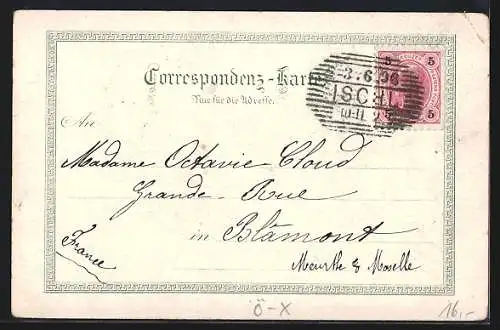 Correspondenz-Karte
Nur für die Adresse.
5 5
-3.6.96
ISCHL
5 5
An
Madame Octavie Cloud
Grande-Rue
in Blâmont
France
Meurthe & Moselle
Ö-X
16,-